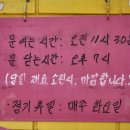 문 여는 시간: 오전 11시 30분
문 닫는 시간: 오후 7시
(당일 재료 소진시, 마감합니다.)
정기휴일: 매주 화요일